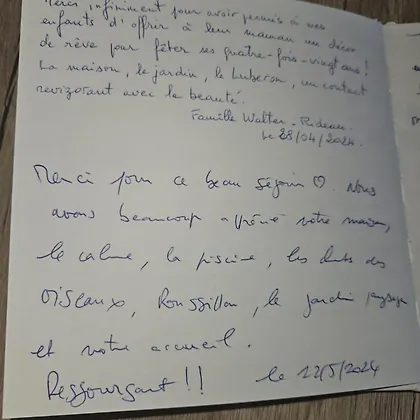 Merci infiniment pour avoir permis à mes
enfants d'offrir à leur maman un décor
de rêve pour fêter ses quatre-fois-vingt ans!
La maison, le jardin, le Luberon, un contact
revigorant avec la beauté.
Famille Walter -
Le 28/04/2024.
Merci pour ce beau séjour ♡. Nous
avons beaucoup apprécié votre maison,
le calme, la piscine, les des
oiseaux, Roussillon, le jardin
et votre accueil.
Ressourçant !! le 12/5/2024